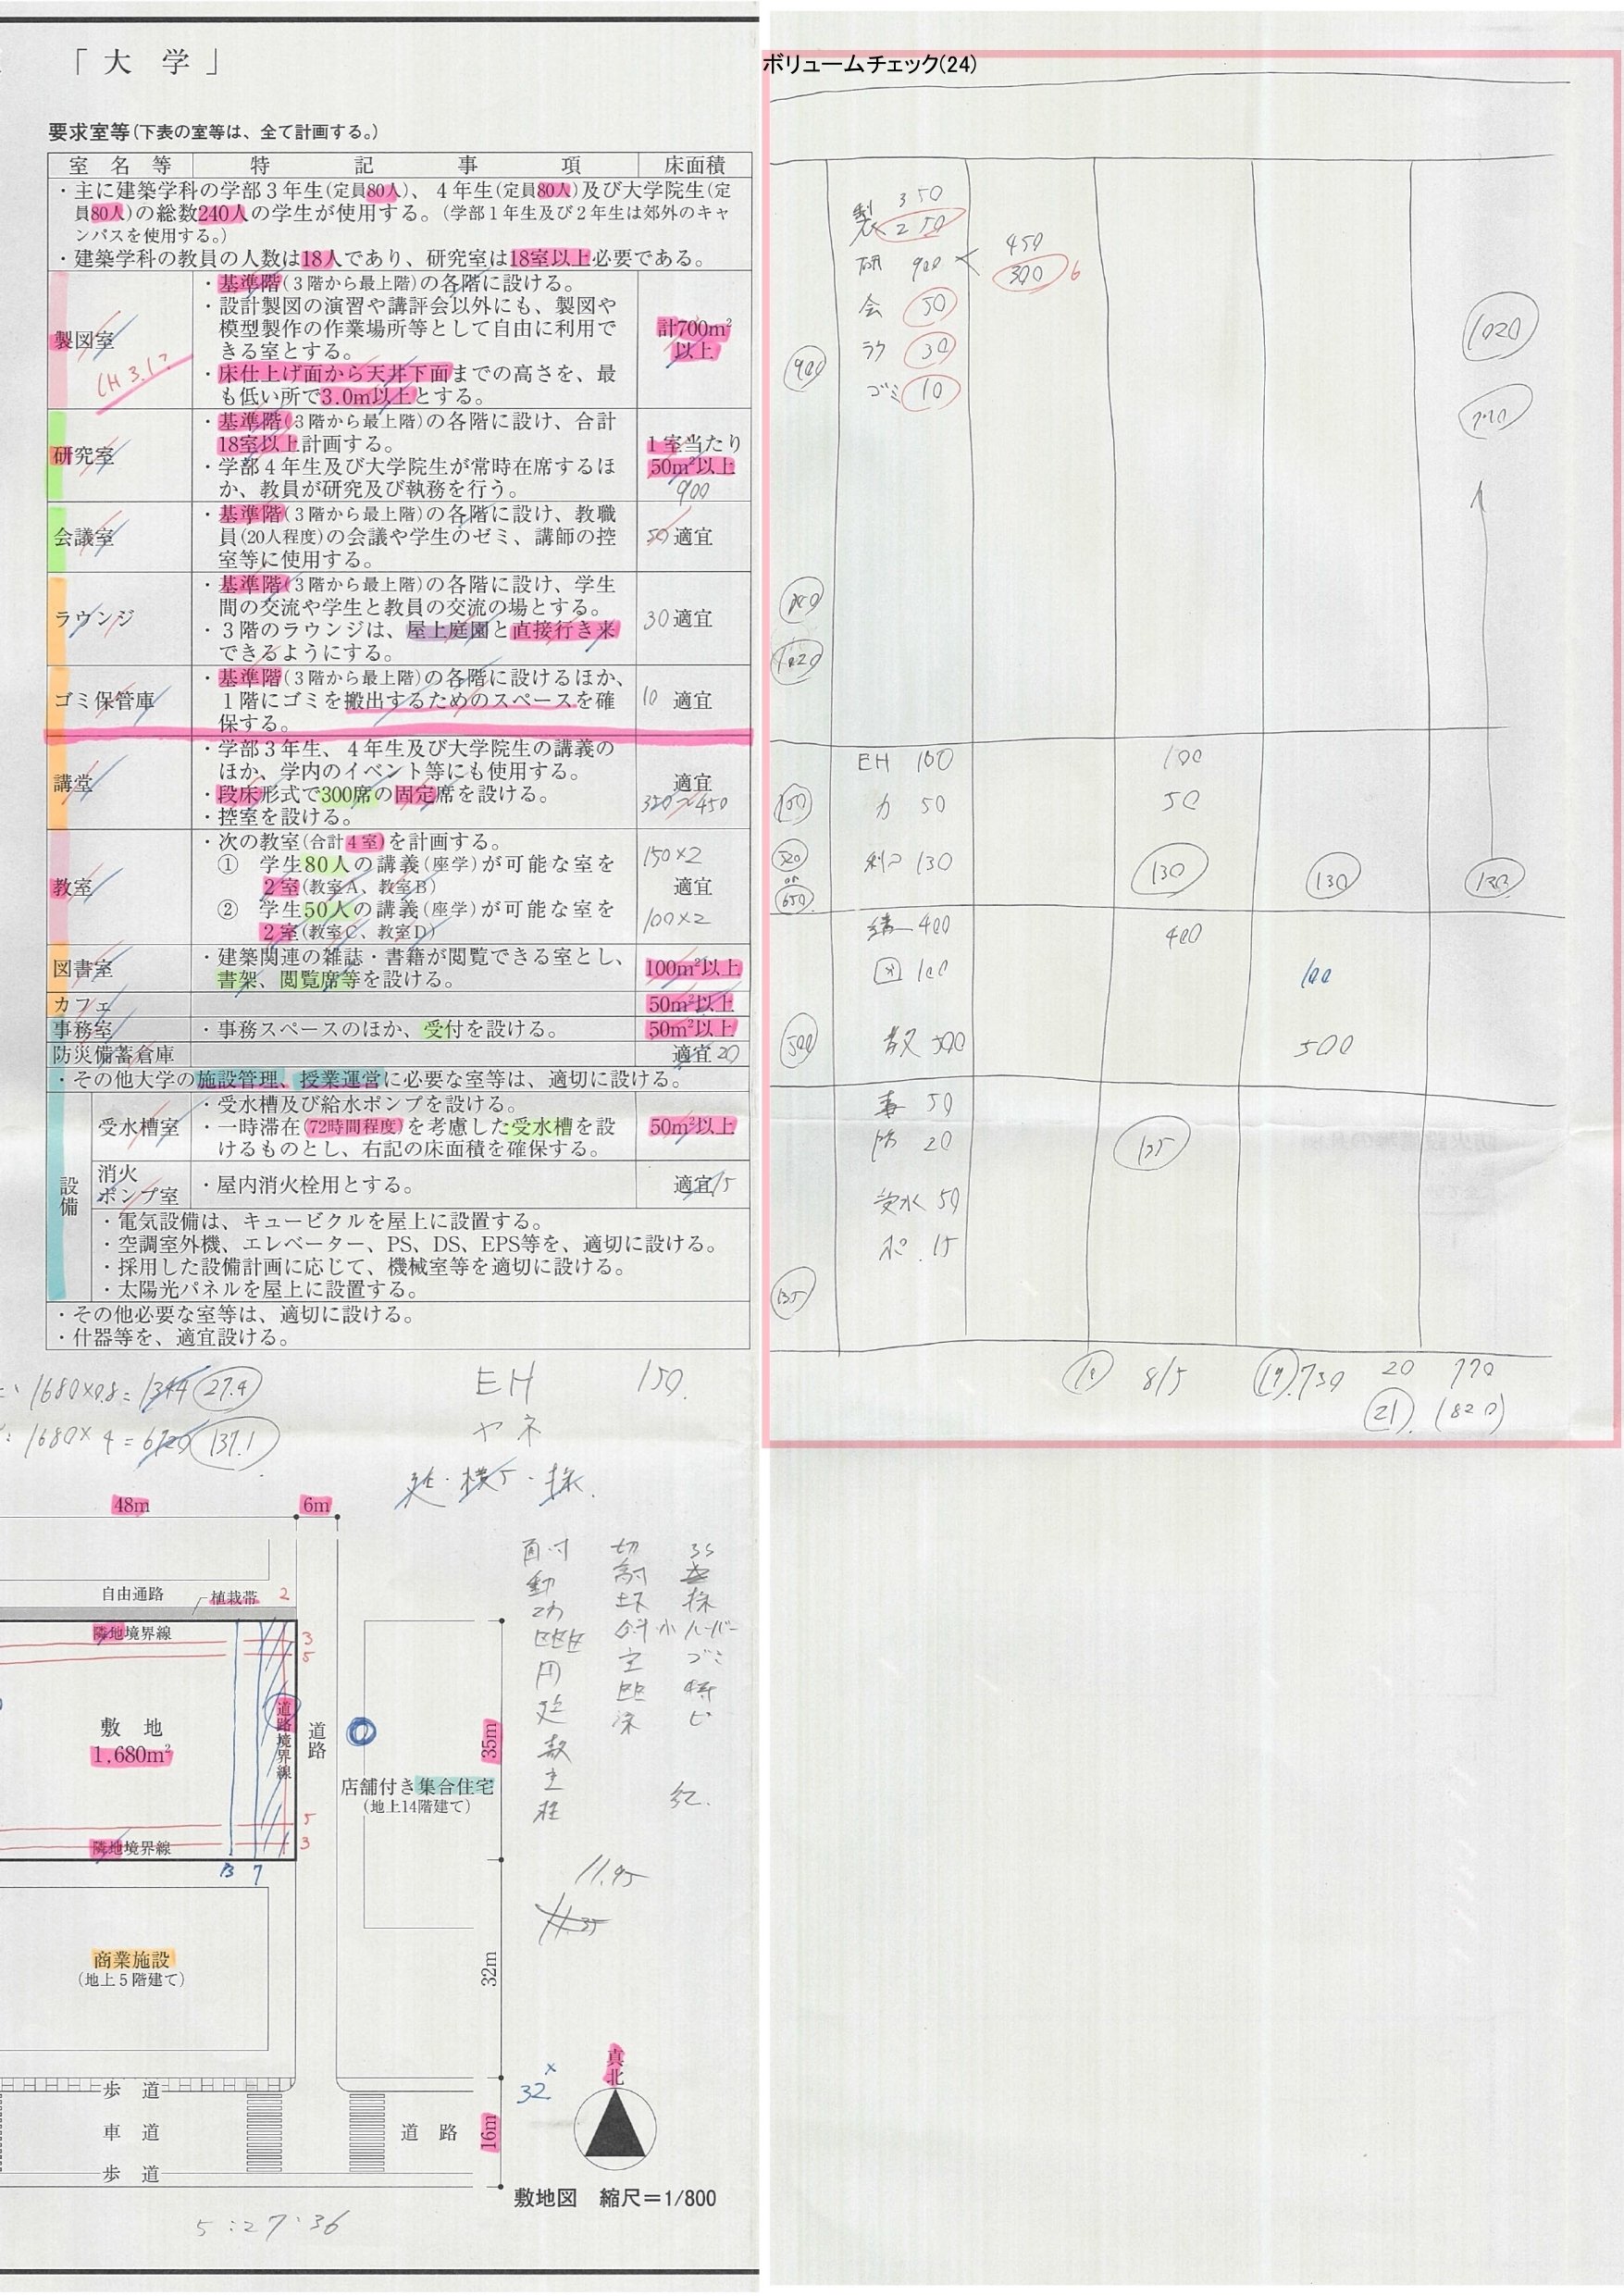 「大学」
要求室等(下表の室等は、全て計画する。)
室名等 特記事項 床面積
・主に建築学科の学部3年生(定員80人)、4年生(定員80人)及び大学院生(定
員80人)の総数240人の学生が使用する。(学部1年生及び2年生は郊外のキャ
ンパスを使用する。)
・建築学科の教員の人数は18人であり、研究室は18室以上必要である。
製図室
CH3.1?
・基準階(3階から最上階)の各階に設ける。
・設計製図の演習や講評会以外にも、製図や
模型製作の作業場所等として自由に利用で
きる室とする。
・床仕上げ面から天井下面までの高さを、最
も低い所で3.0m以上とする。
計700m²
以上
研究室
・基準階(3階から最上階)の各階に設け、合計
18室以上計画する。
・学部4年生及び大学院生が常時在席するほ
か、教員が研究及び執務を行う。
1室当たり
50m²以上
900
会議室
・基準階(3階から最上階)の各階に設け、教職
員(20人程度)の会議や学生のゼミ、講師の控
室等に使用する。
50 適宜
ラウンジ
・基準階(3階から最上階)の各階に設け、学生
間の交流や学生と教員の交流の場とする。
・3階のラウンジは、屋上庭園と直接行き来
できるようにする。
30 適宜
ゴミ保管庫
・基準階(3階から最上階)の各階に設けるほか、
1階にゴミを搬出するためのスペースを確
保する。
10 適宜
講堂
・学部3年生、4年生及び大学院生の講義の
ほか、学内のイベント等にも使用する。
・段床形式で300席の固定席を設ける。
・控室を設ける。
適宜
350~450
教室
・次の教室(合計4室)を計画する。
① 学生80人の講義(座学)が可能な室を
2室(教室A、教室B)
② 学生50人の講義(座学)が可能な室を
2室(教室C、教室D)
150×2
適宜
100×2
図書室
・建築関連の雑誌・書籍が閲覧できる室とし、
書架、閲覧席等を設ける。
100m²以上
カフェ 50m²以上
事務室 ・事務スペースのほか、受付を設ける。 50m²以上
防災備蓄倉庫 適宜 20
・その他大学の施設管理、授業運営に必要な室等は、適切に設ける。
設備
受水槽室
・受水槽及び給水ポンプを設ける。
・一時滞在(72時間程度)を考慮した受水槽を設
けるものとし、右記の床面積を確保する。
50m²以上
消火
ポンプ室
・屋内消火栓用とする。
適宜 15
・電気設備は、キュービクルを屋上に設置する。
・空調室外機、エレベーター、PS、DS、EPS等を、適切に設ける。
・採用した設備計画に応じて、機械室等を適切に設ける。
・太陽光パネルを屋上に設置する。
・その他必要な室等は、適切に設ける。
・什器等を、適宜設ける。
1680×0.8=1344 27.4
1680×4=6720 137.1
EH 150.
ヤネ
48m 6m
自由通路
植栽帯 2
隣地境界線 3
5
敷地
1,680m²
道路境界線
道路
店舗付き集合住宅
(地上14階建て)
35m
5
隣地境界線 3
13 7
11.95
商業施設
(地上5階建て)
32m
32
真北
歩道
車道
歩道
道路
16m
敷地図 縮尺=1/800
5:27:36
ボリュームチェック(24)
350
製 250
450
研 900 < 300 6
会 50
ラウ 30
ゴミ 10
900
1020
EH 100 100
カ 50 50
利つ 130 130 130 130
650
講 400 400
図 100 100
教 500 500
500
事 50
防 20
135
受水 50
ポ. 15
135
815 19 730 20 770
21 (820)